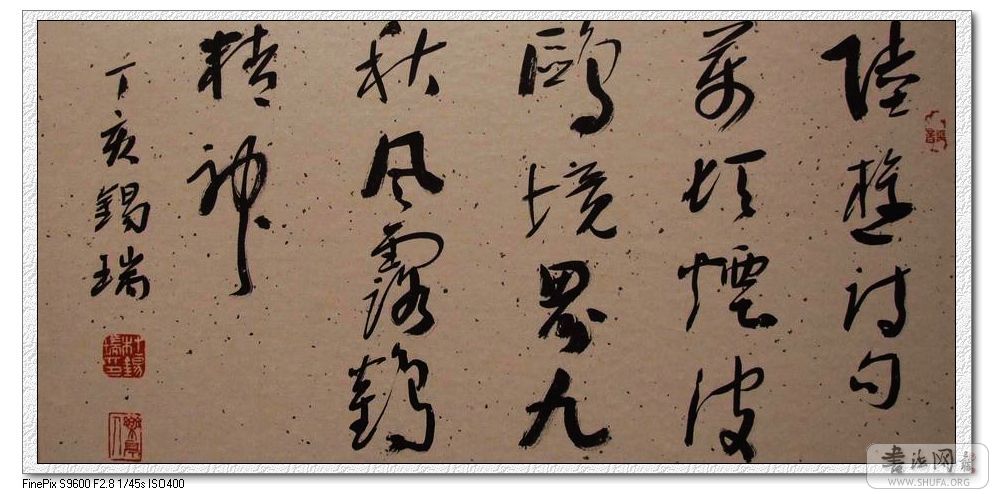 陸游詩句
萬頃煙波
鷗境界九
秋風露鶴
精神
丁亥錫瑞
書法网
WWW.SHUFA.ORG
FinePix S9600 F2.8 1/45s ISO400